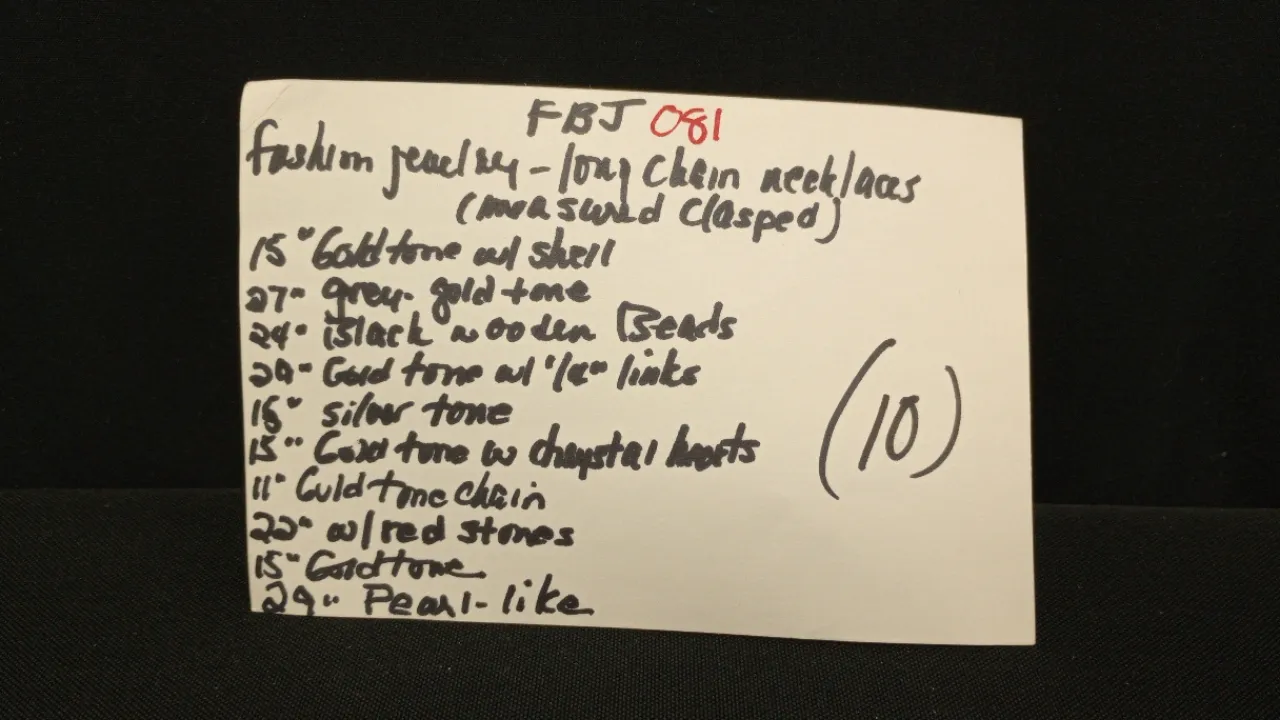 FBJ 081
fashion jewelry - long chain necklaces
(measured clasped)
15" Goldtone w/ shell
27" grey - gold tone
24" Black wooden Beads
Gold tone w/ links
silver tone
15" Gold tone w chrystal hearts
11" Goldtone chain
22" w/ red stones
15" Goldtone
29" Pearl-like
(10)